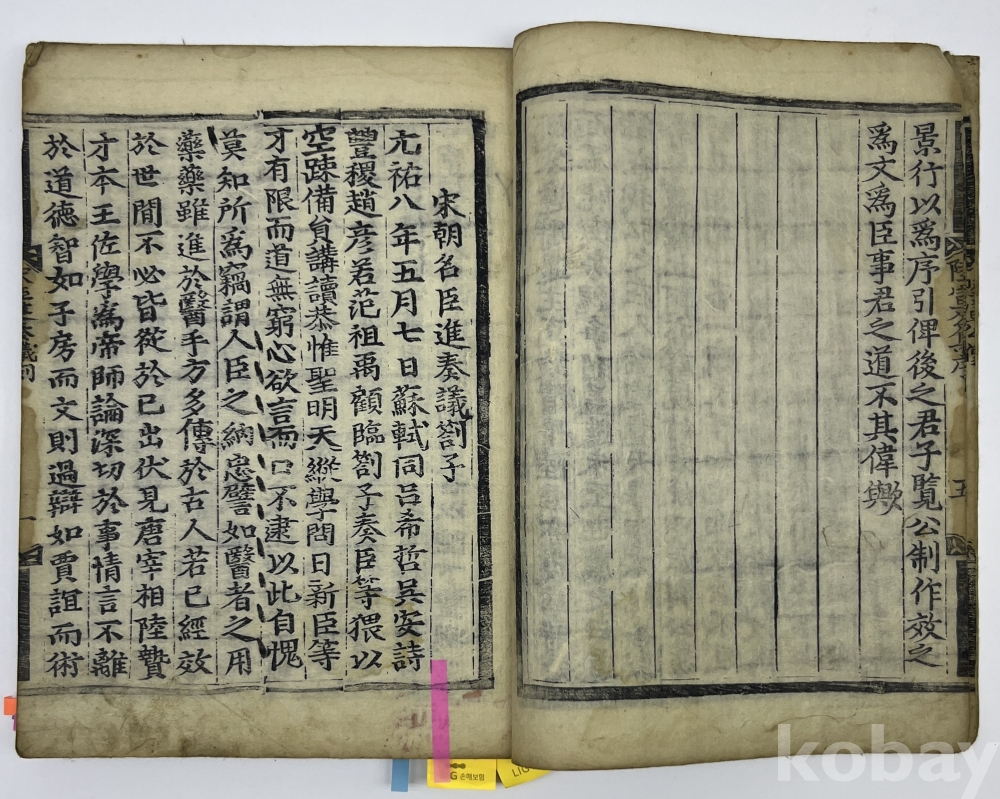 景行以爲序引俾後之君子覽公制作效之
爲文爲臣事君之道不其偉歟
五
宋朝名臣進奏議劄子
元祐八年五月七日蘇軾同呂希哲吳安詩
豐稷趙彥若范祖禹顧臨劄子奏臣等猥以
空疎備負講讀恭惟聖明天縱學問日新臣等
才有限而道無窮心欲言而口不逮以此自愧
莫知所爲竊謂人臣之納忠譬如醫者之用
藥藥雖進於醫手方多傳於古人若已經效
於世間不必皆從於已出伏見唐宰相陸贄
才本王佐學爲帝師論深切於事情言不離
於道德智如子房而文則過辯如賈誼而術
一
G 손해보험
LIG
kobay